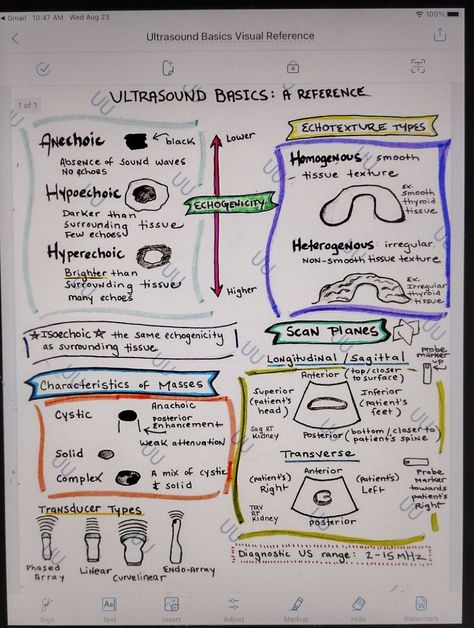 Gmail 10:47 AM Wed Aug 23
100%
Ultrasound Basics Visual Reference
1 of 1
ULTRASOUND BASICS: A REFERENCE
Anechoic
black
Absence of sound waves
No echoes
Hypoechoic
Darker than
surrounding tissue
Few echoes
Hyperechoic
Brighter than
surrounding tissue
many echoes
Lower
ECHOGENICITY
Higher
ECHOTEXTURE TYPES
Homogenous smooth
tissue texture
Ex.
smooth
thyroid
tissue
Heterogenous irregular,
NON-smooth tissue texture
Ex.
Irregular
thyroid
tissue
Isoechoic the same echogenicity
as surrounding tissue
Characteristics of Masses
Cystic
Anachoic
Posterior
Enhancement
Weak attenuation
Solid
Complex
A mix of cystic
& solid
Transducer Types
Phased
Array
Linear
Curvelinear
Endo-Array
SCAN PLANES
Longitudinal/Sagittal
Probe
marker
up
Anterior (top/closer
to surface)
Superior
(patient's
head)
Inferior
(patient's
feet)
Sag RT
Kidney
Posterior (bottom/closer to
patient's spine)
Transverse
Anterior
(patient's)
Right
(patient's)
Left
Probe
Marker
towards
patient's
Right
TRV
RT
Kidney
Posterior
Diagnostic US range: 2-15 MHz
UU
Sign
Text
Insert
Adjust
Markup
Hide
Watermark